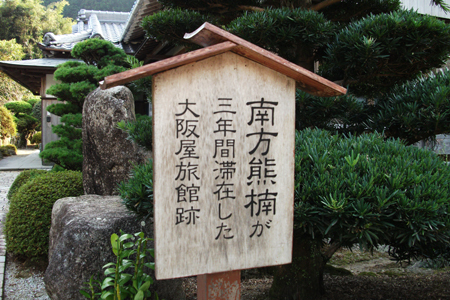 南方熊楠が
三年間滞在した
大阪屋旅館跡